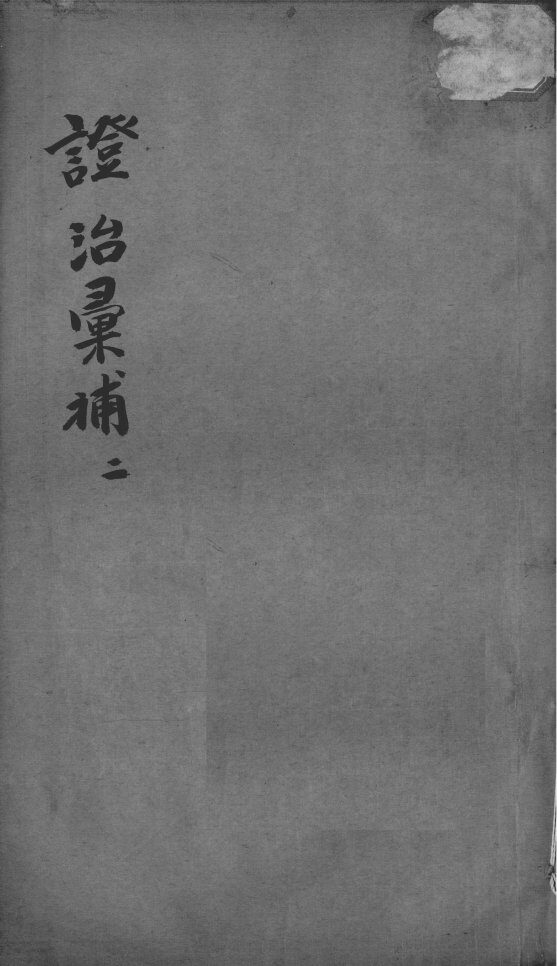 證治彙補二